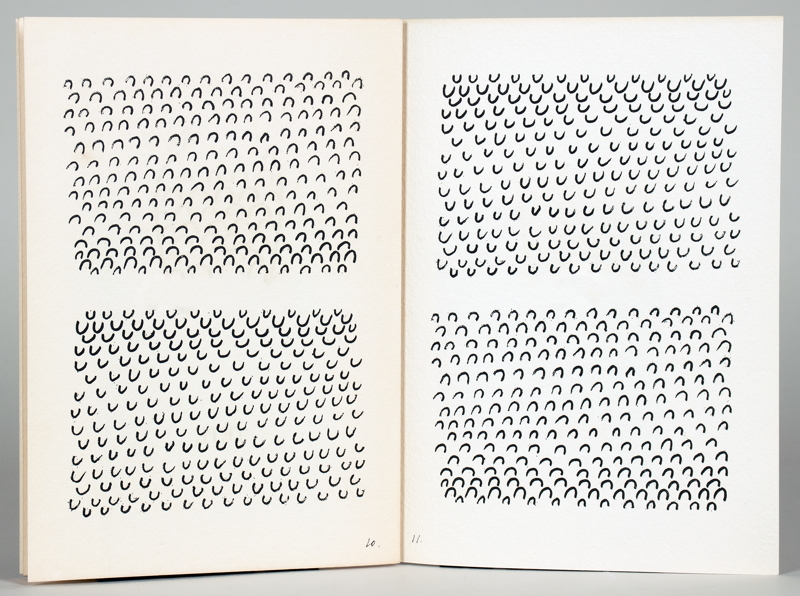 10.
11.